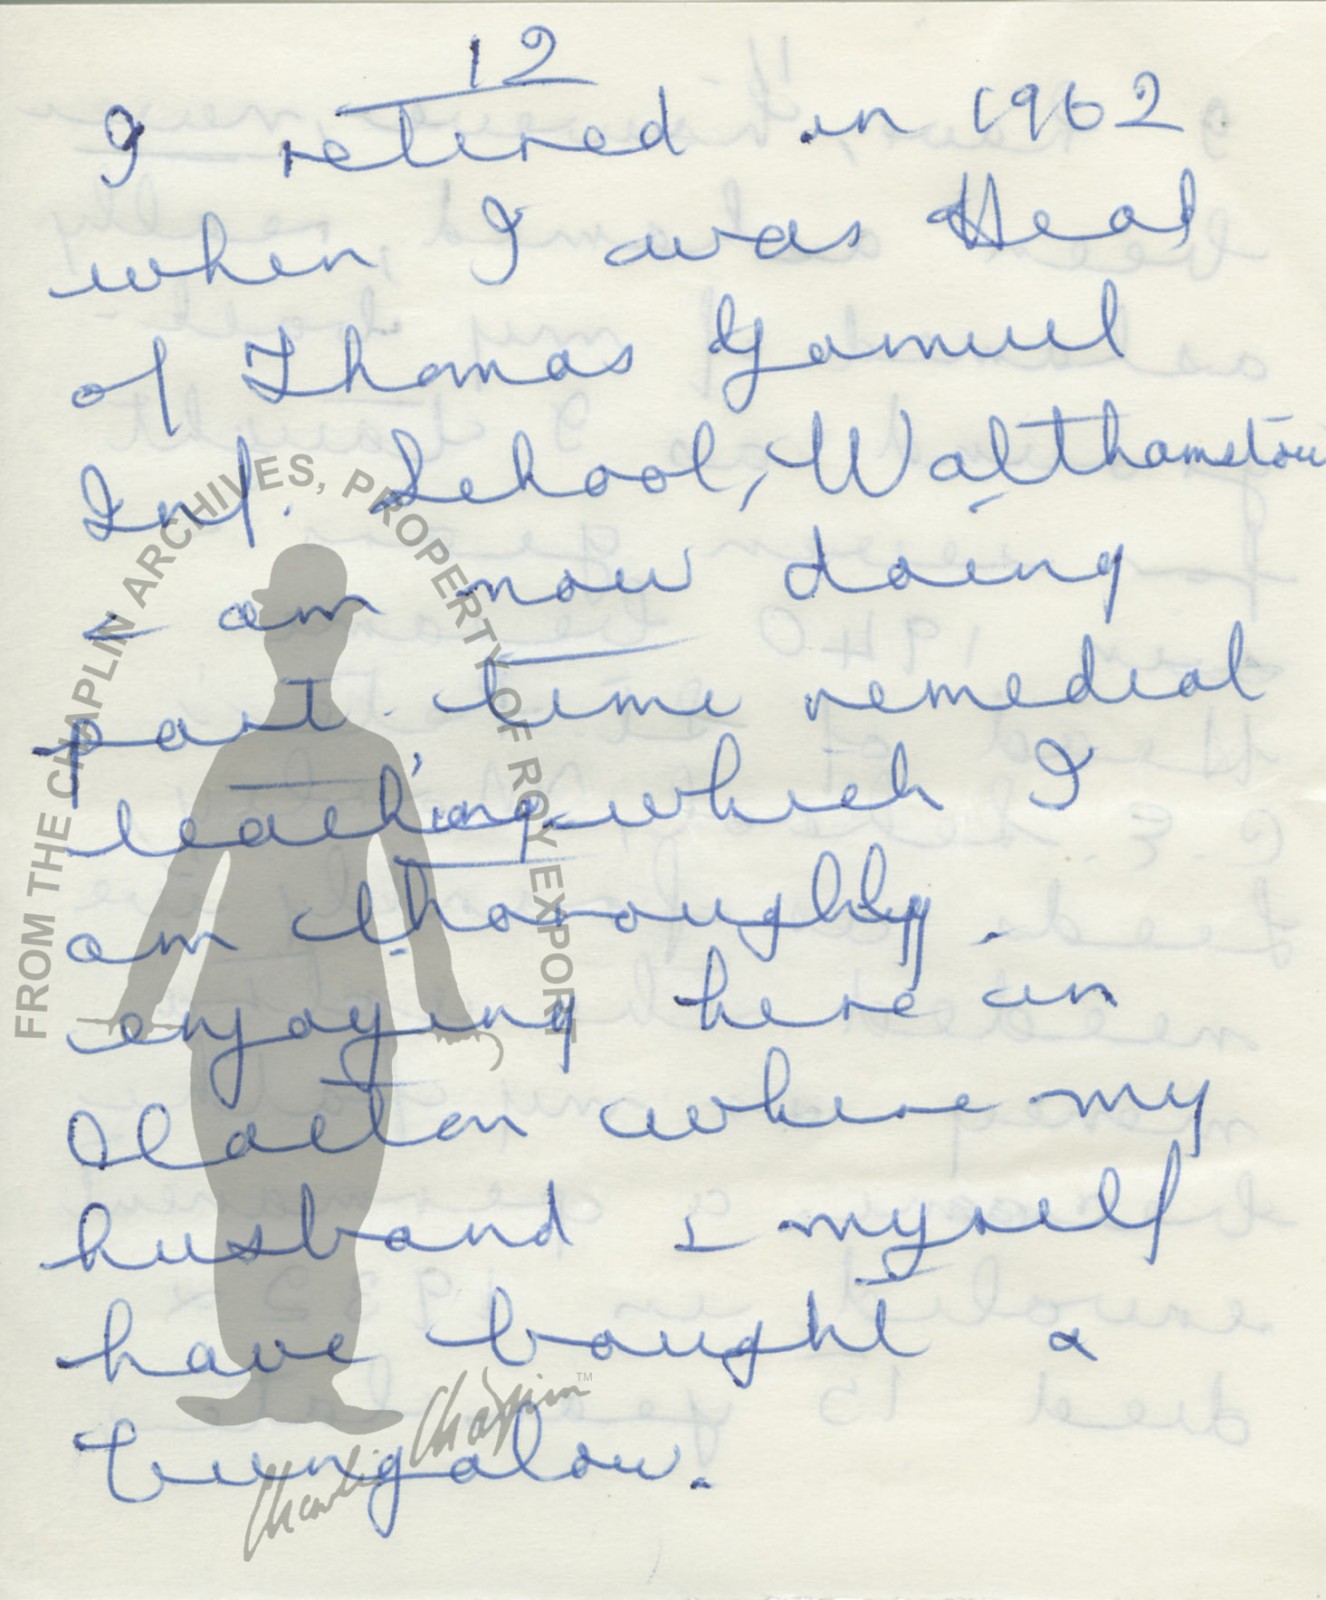 12
I retired in 1962
when I was Head
of Thomas Gamuel
Inf. School, Walthamstow
& am now doing
part time remedial
teaching which I
am thoroughly
enjoying here in
Clacton where my
husband & myself
have bought a
bungalow.
FROM THE CHAPLIN ARCHIVES, PROPERTY OF ROY EXPORT
Charlie Chaplin™